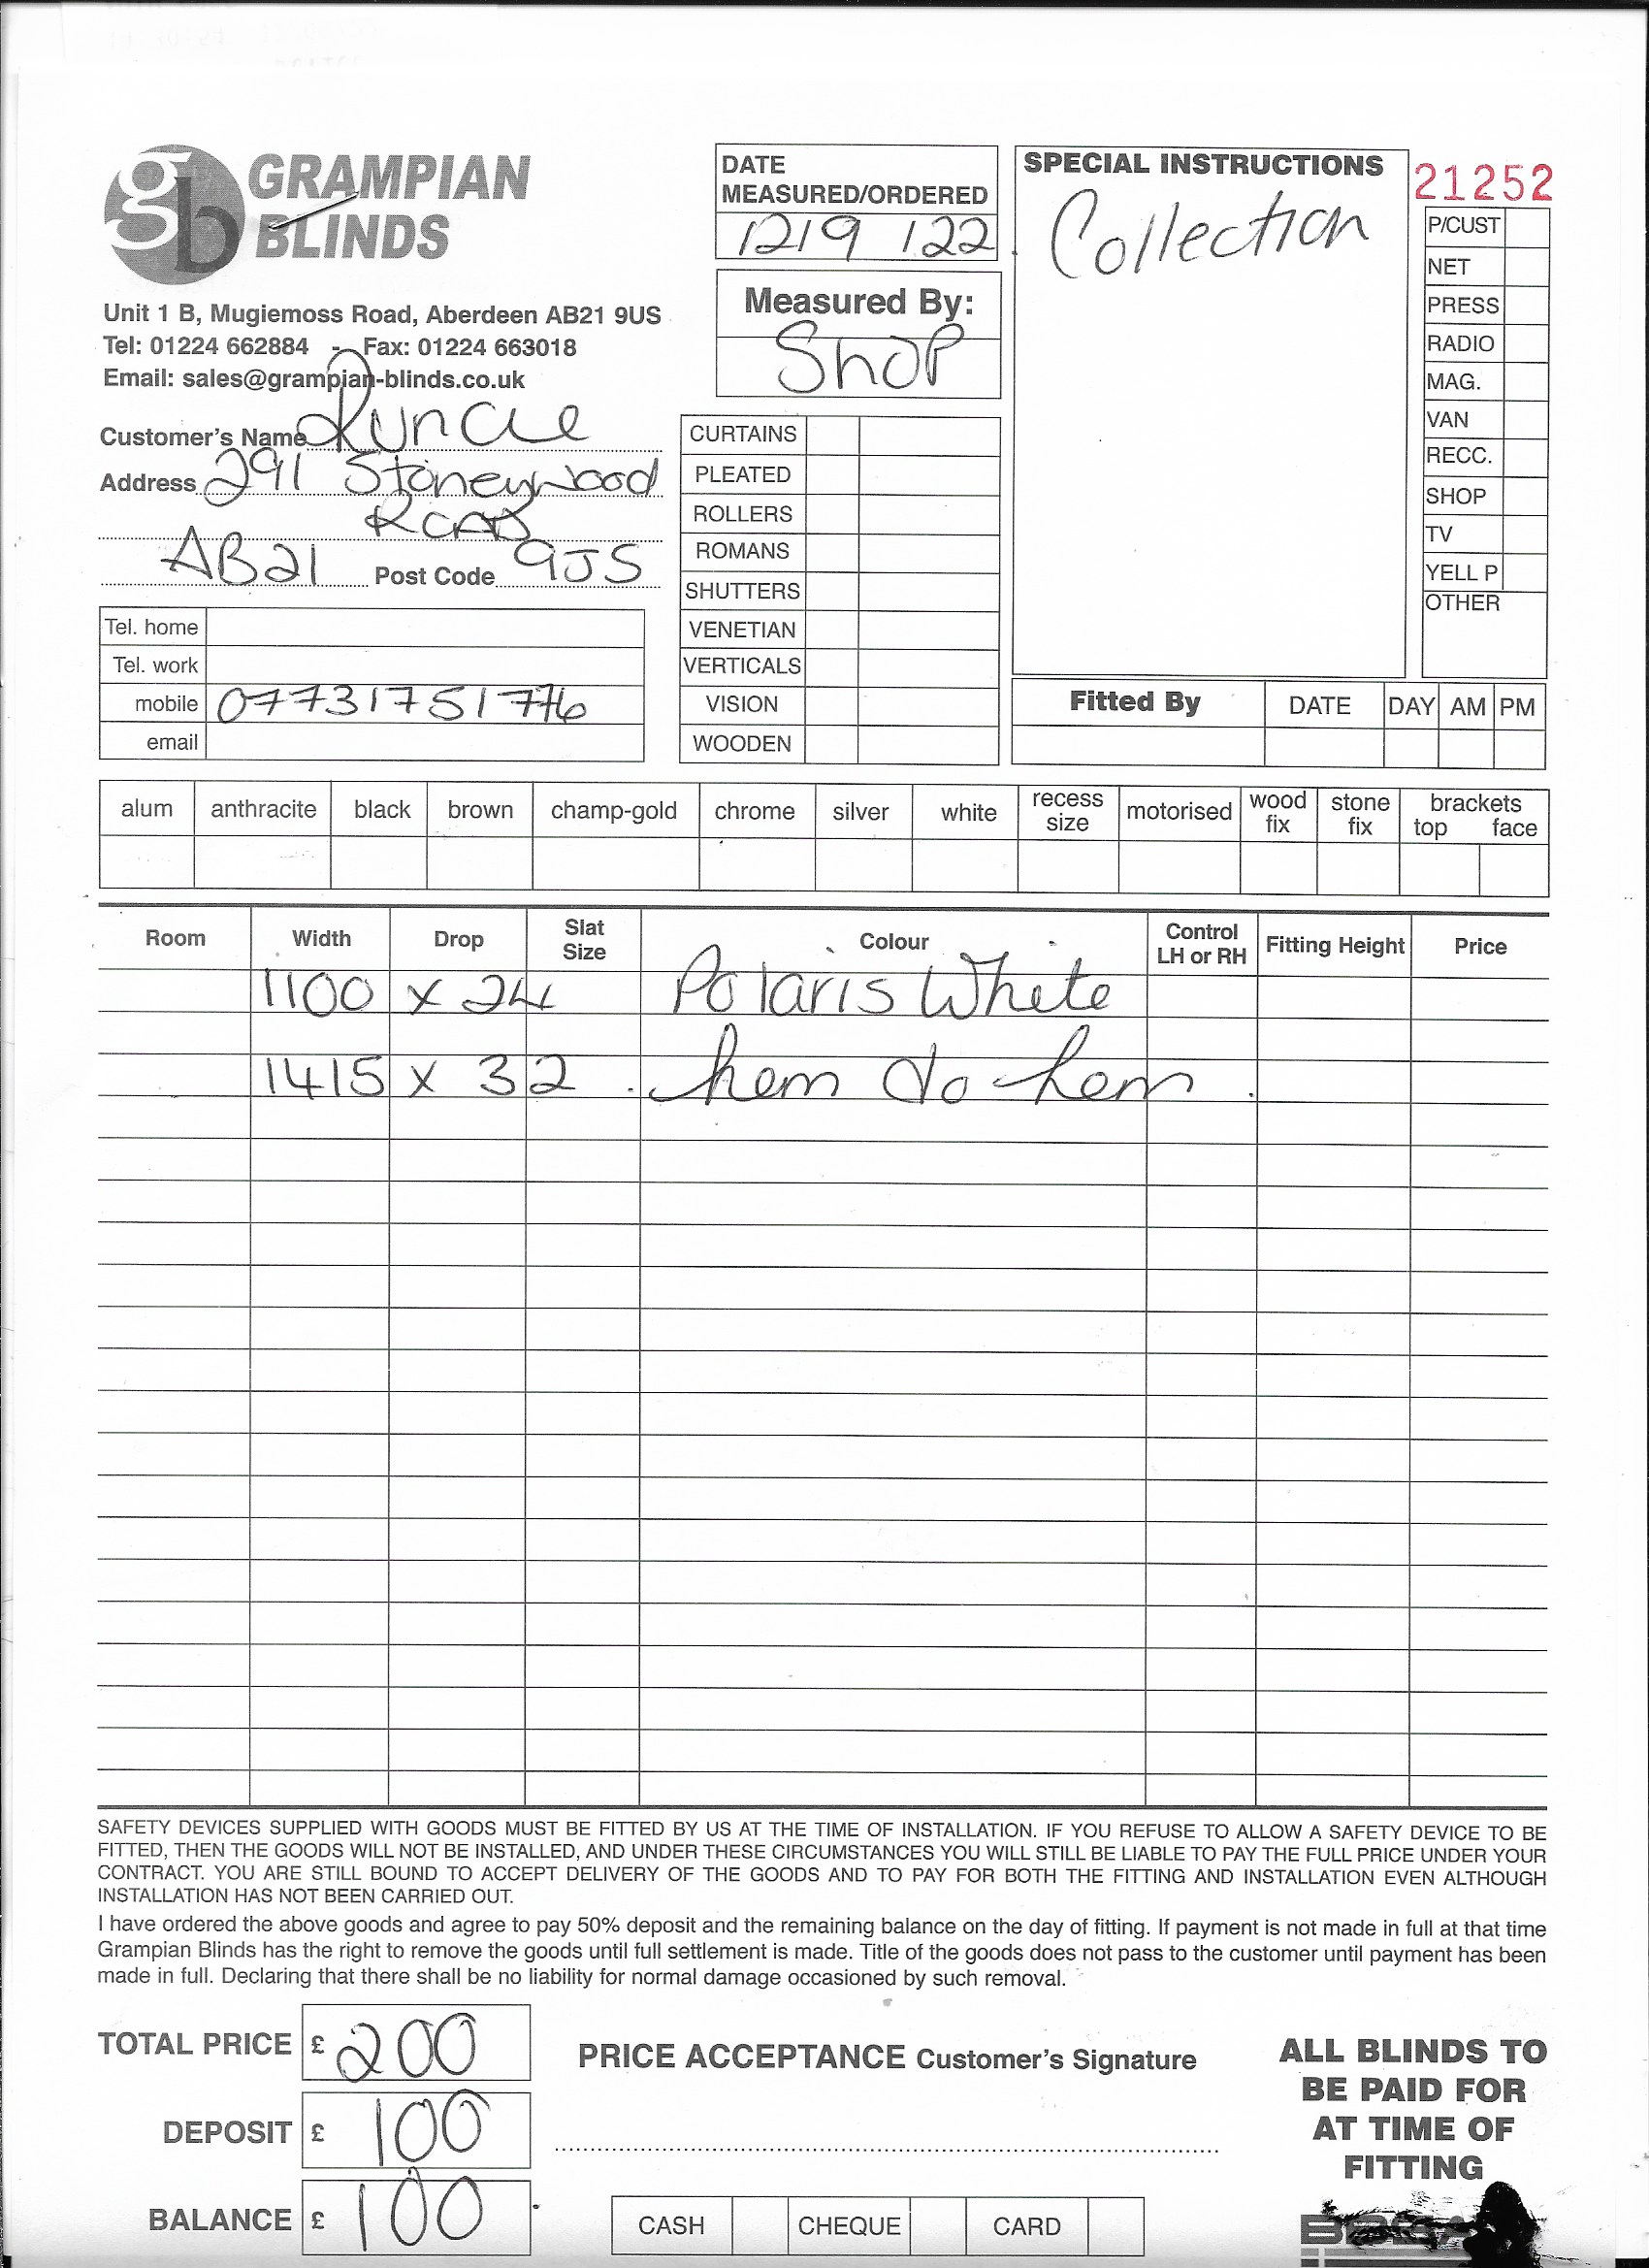 gb GRAMPIAN
BLINDS
Unit 1 B, Mugiemoss Road, Aberdeen AB21 9US
Tel: 01224 662884 - Fax: 01224 663018
Email: sales@grampian-blinds.co.uk
Customer's Name Runcie
Address 291 Stoneywood
ROAD
AB21 Post Code 9JS
Tel. home
Tel. work
mobile 07731751776
email
DATE
MEASURED/ORDERED
12/9/22
Measured By:
Shop
CURTAINS
PLEATED
ROLLERS
ROMANS
SHUTTERS
VENETIAN
VERTICALS
VISION
WOODEN
SPECIAL INSTRUCTIONS
Collection
21252
P/CUST
NET
PRESS
RADIO
MAG.
VAN
RECC.
SHOP
TV
YELL P
OTHER
Fitted By DATE DAY AM PM
alum anthracite black brown champ-gold chrome silver white recess size motorised wood fix stone fix brackets top face
Room Width Drop Slat Size Colour Control LH or RH Fitting Height Price
1100 x 24 Polaris White
1415 x 32 . hem to hem .
SAFETY DEVICES SUPPLIED WITH GOODS MUST BE FITTED BY US AT THE TIME OF INSTALLATION. IF YOU REFUSE TO ALLOW A SAFETY DEVICE TO BE
FITTED, THEN THE GOODS WILL NOT BE INSTALLED, AND UNDER THESE CIRCUMSTANCES YOU WILL STILL BE LIABLE TO PAY THE FULL PRICE UNDER YOUR
CONTRACT. YOU ARE STILL BOUND TO ACCEPT DELIVERY OF THE GOODS AND TO PAY FOR BOTH THE FITTING AND INSTALLATION EVEN ALTHOUGH
INSTALLATION HAS NOT BEEN CARRIED OUT.
I have ordered the above goods and agree to pay 50% deposit and the remaining balance on the day of fitting. If payment is not made in full at that time
Grampian Blinds has the right to remove the goods until full settlement is made. Title of the goods does not pass to the customer until payment has been
made in full. Declaring that there shall be no liability for normal damage occasioned by such removal.
TOTAL PRICE £ 200
DEPOSIT £ 100
BALANCE £ 100
PRICE ACCEPTANCE Customer's Signature
CASH CHEQUE CARD
ALL BLINDS TO
BE PAID FOR
AT TIME OF
FITTING